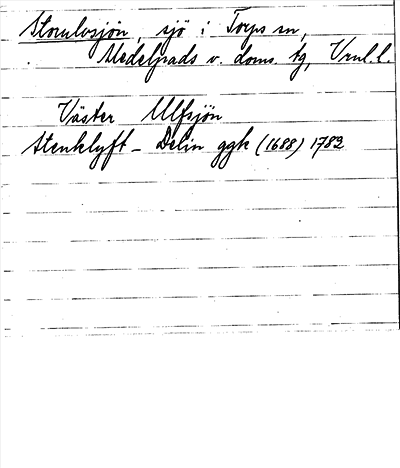 Stornlvsjön, sjö i Torps sn,
Medelpads v. doms. tg, Vrnl. l.
Väster Ulfsjön
Stenklyft – Delin ggk (1688) 1782